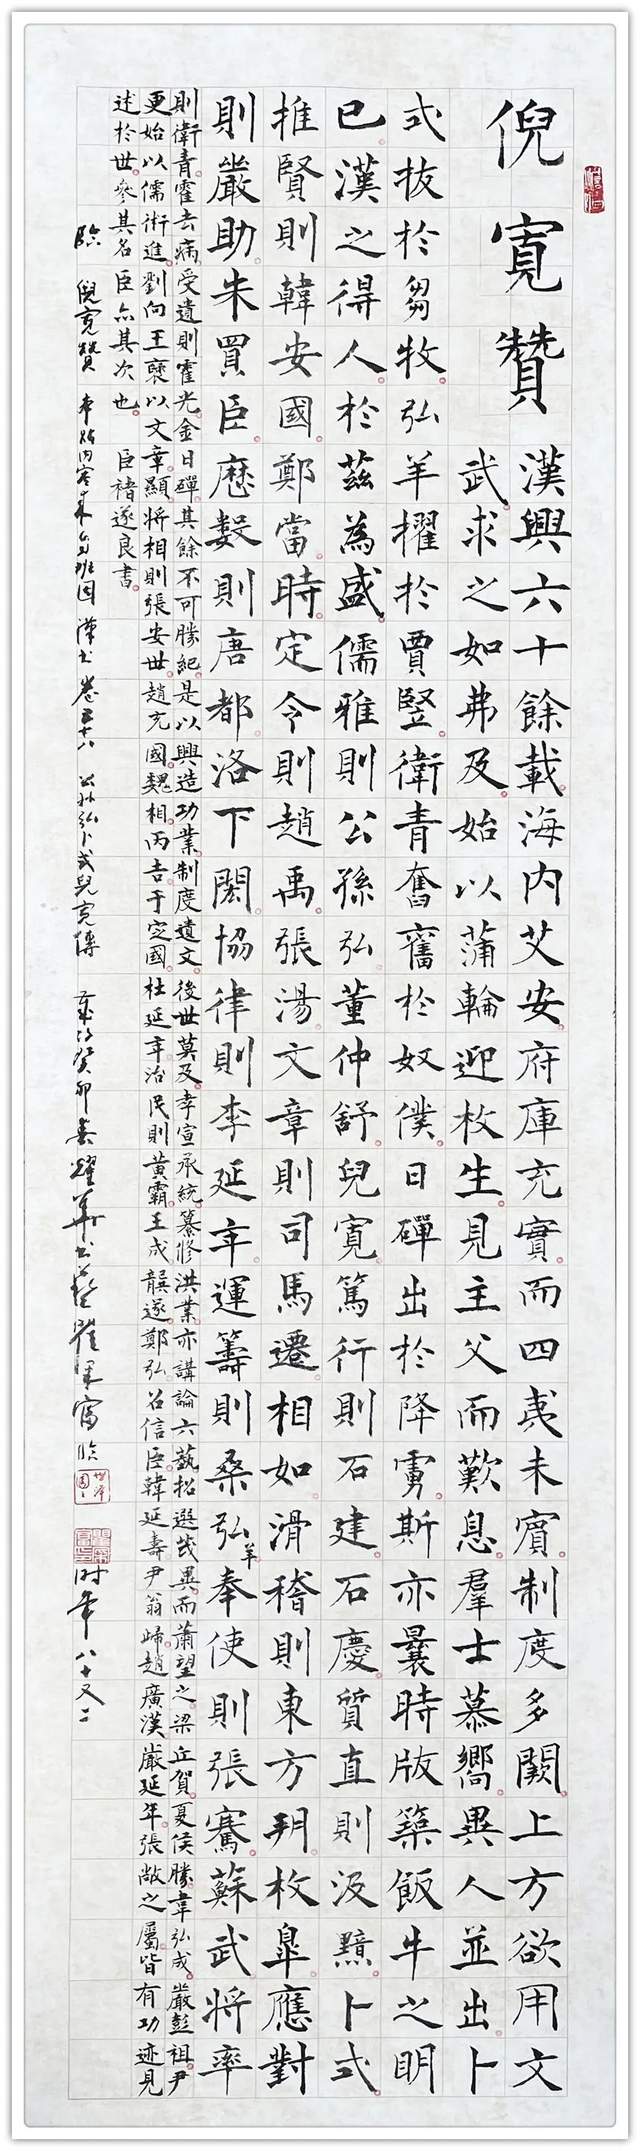 倪寬贊
漢興六十餘載海內艾安府庫充實而四夷未賓制度多闕上方欲用文
武求之如弗及始以蒲輪迎枚生見主父而歎息羣士慕嚮異人並出卜
式拔於芻牧弘羊擢於賈豎衛青奮奮於奴僕日磾出於降虜斯亦曩時版築飯牛之明
已漢之得人於茲為盛儒雅則公孫弘董仲舒兒寬篤行則石建石慶質直則汲黯卜式
推賢則韓安國鄭當時定令則趙禹張湯文章則司馬遷相如滑稽則東方朔枚皋應對
則嚴助朱買臣歷數則唐都洛下閎協律則李延年運籌則桑弘羊奉使則張騫蘇武將率
則衛青霍去病受遺則霍光金日磾其餘不可勝紀是以興造功業制度遺文後世莫及孝宣承統纂修洪業亦講論六藝招選茂異而蕭望之梁丘賀夏侯勝韋弘成嚴彭祖尹
更始以儒術進劉向王褒以文章顯將相則張安世趙充國魏相丙吉于定國杜延年治民則黃霸王成龔遂鄭弘召信臣韓延壽尹翁歸趙廣漢嚴延年張敞之屬皆有功迹見
述於世參其名臣亦其次也 臣褚遂良書
臨 倪寬贊 本帖內容來自班固漢書卷五十八 公孫弘卜式兒寬傳 歲次癸卯春躍華書藝 臨 时年八十又二